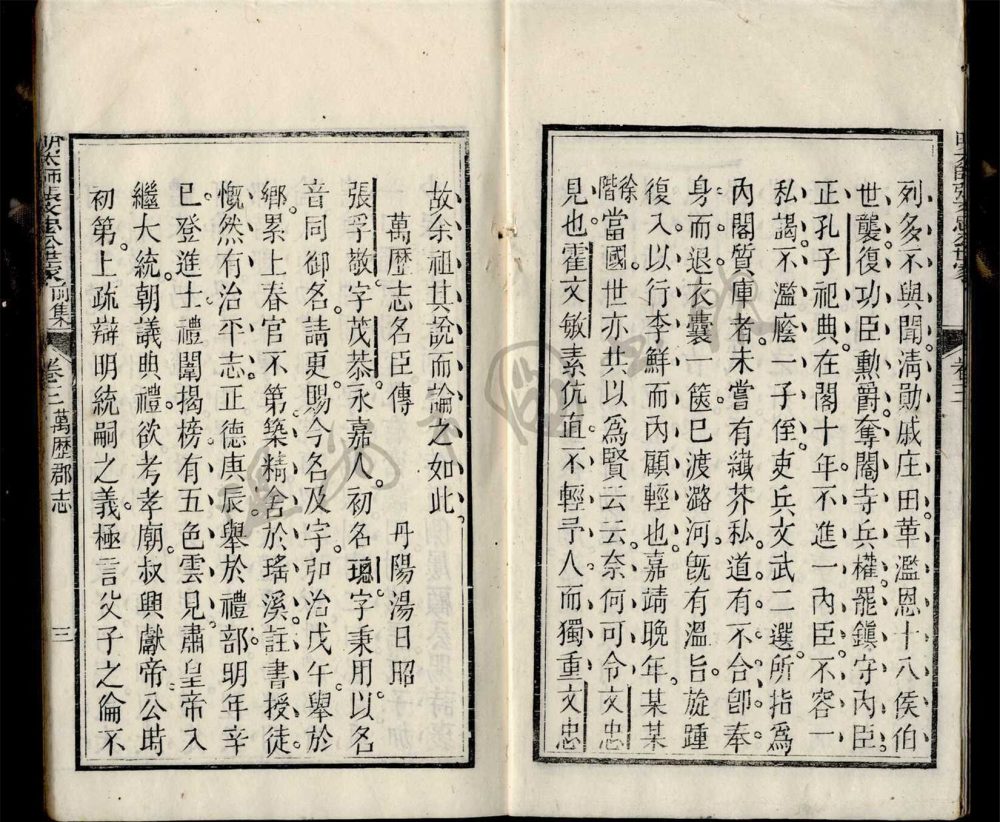 列多不與聞清勛戚庄田革濫恩十八侯伯
世襲復功臣勲爵奪閹寺兵權罷鎭守內臣
正孔子祀典在閣十年不進一內臣不容一
私謁不濫廕一子侄吏兵文武二選所指為
內閣質庫者未嘗有纖芥私道有不合卽奉
身而退衣囊一篋巳渡潞河旣有溫旨旋踵
復入以行李鮮而內顧輕也嘉靖晚年某某
徐階當國世亦共以為賢云云奈何可令文忠
見也霍文敏素伉直不輕予人而獨重文忠
明太師張文忠公世家
卷三
故余祖其說而論之如此
萬歷志名臣傳 丹陽湯日昭
張孚敬字茂恭永嘉人初名璁字秉用以名
音同御名請更賜今名及字弘治戊午舉於
鄉累上春官不第築精舍於瑤溪註書授徒
慨然有治平志正德庚辰舉於禮部明年辛
巳登進士禮闈揭榜有五色雲見肅皇帝入
繼大統朝議典禮欲考孝廟叔興獻帝公時
初第上疏辯明統嗣之義極言父子之倫不
明太師張文忠公世家 前集 卷三 萬歷郡志 三